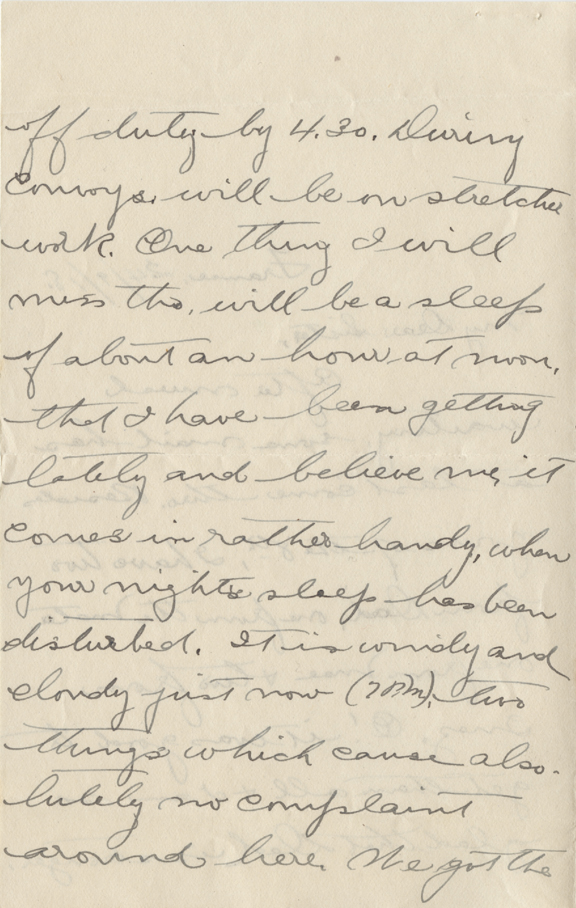 off duty by 4.30. During
convoys, will be on stretcher
work. One thing I will
miss tho, will be a sleep
of about an hour at noon,
that I have been getting
lately and believe me, it
comes in rather handy, when
your nights sleep has been
disturbed. It is windy and
cloudy just now (7PM), two
things which cause abso-
lutely no complaint
around here. We got the